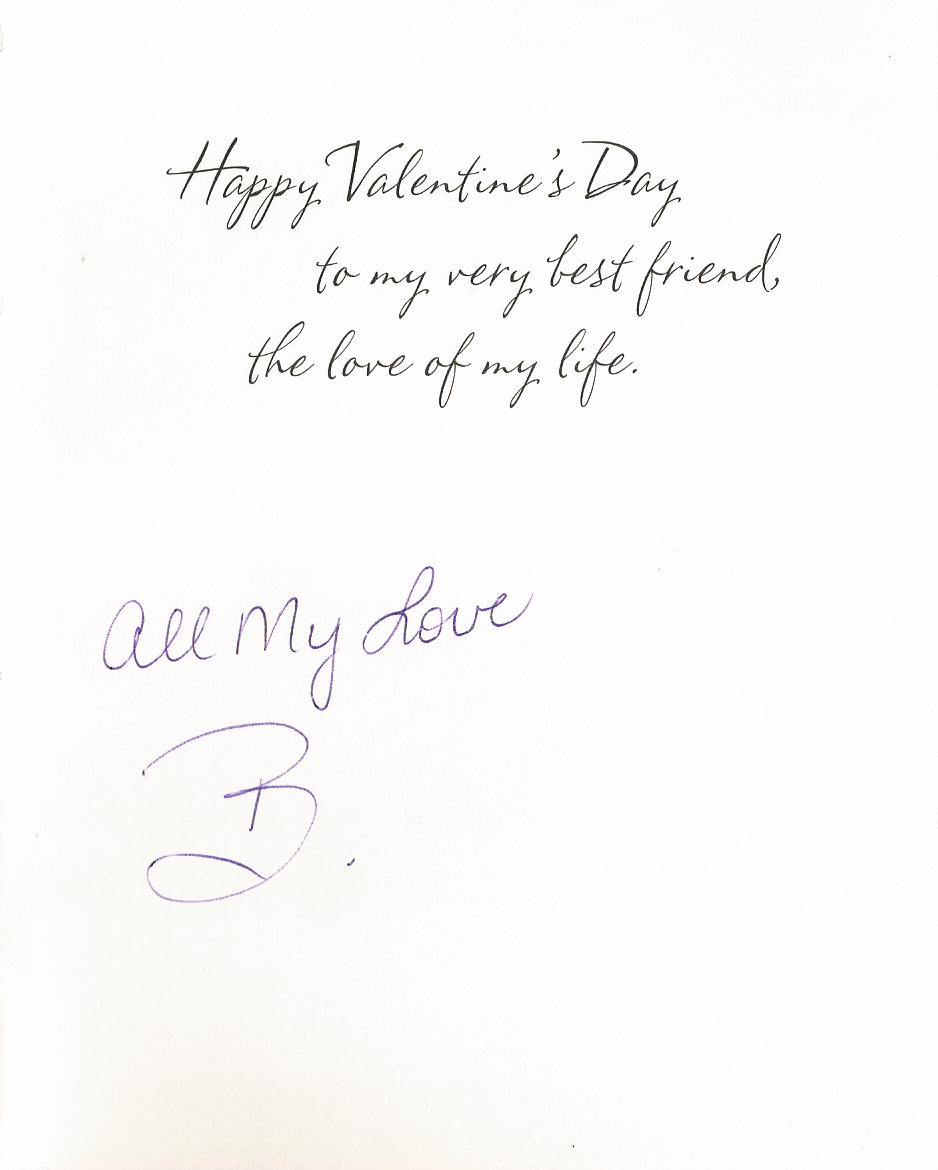 Happy Valentine's Day
to my very best friend,
the love of my life.
All My Love
B.